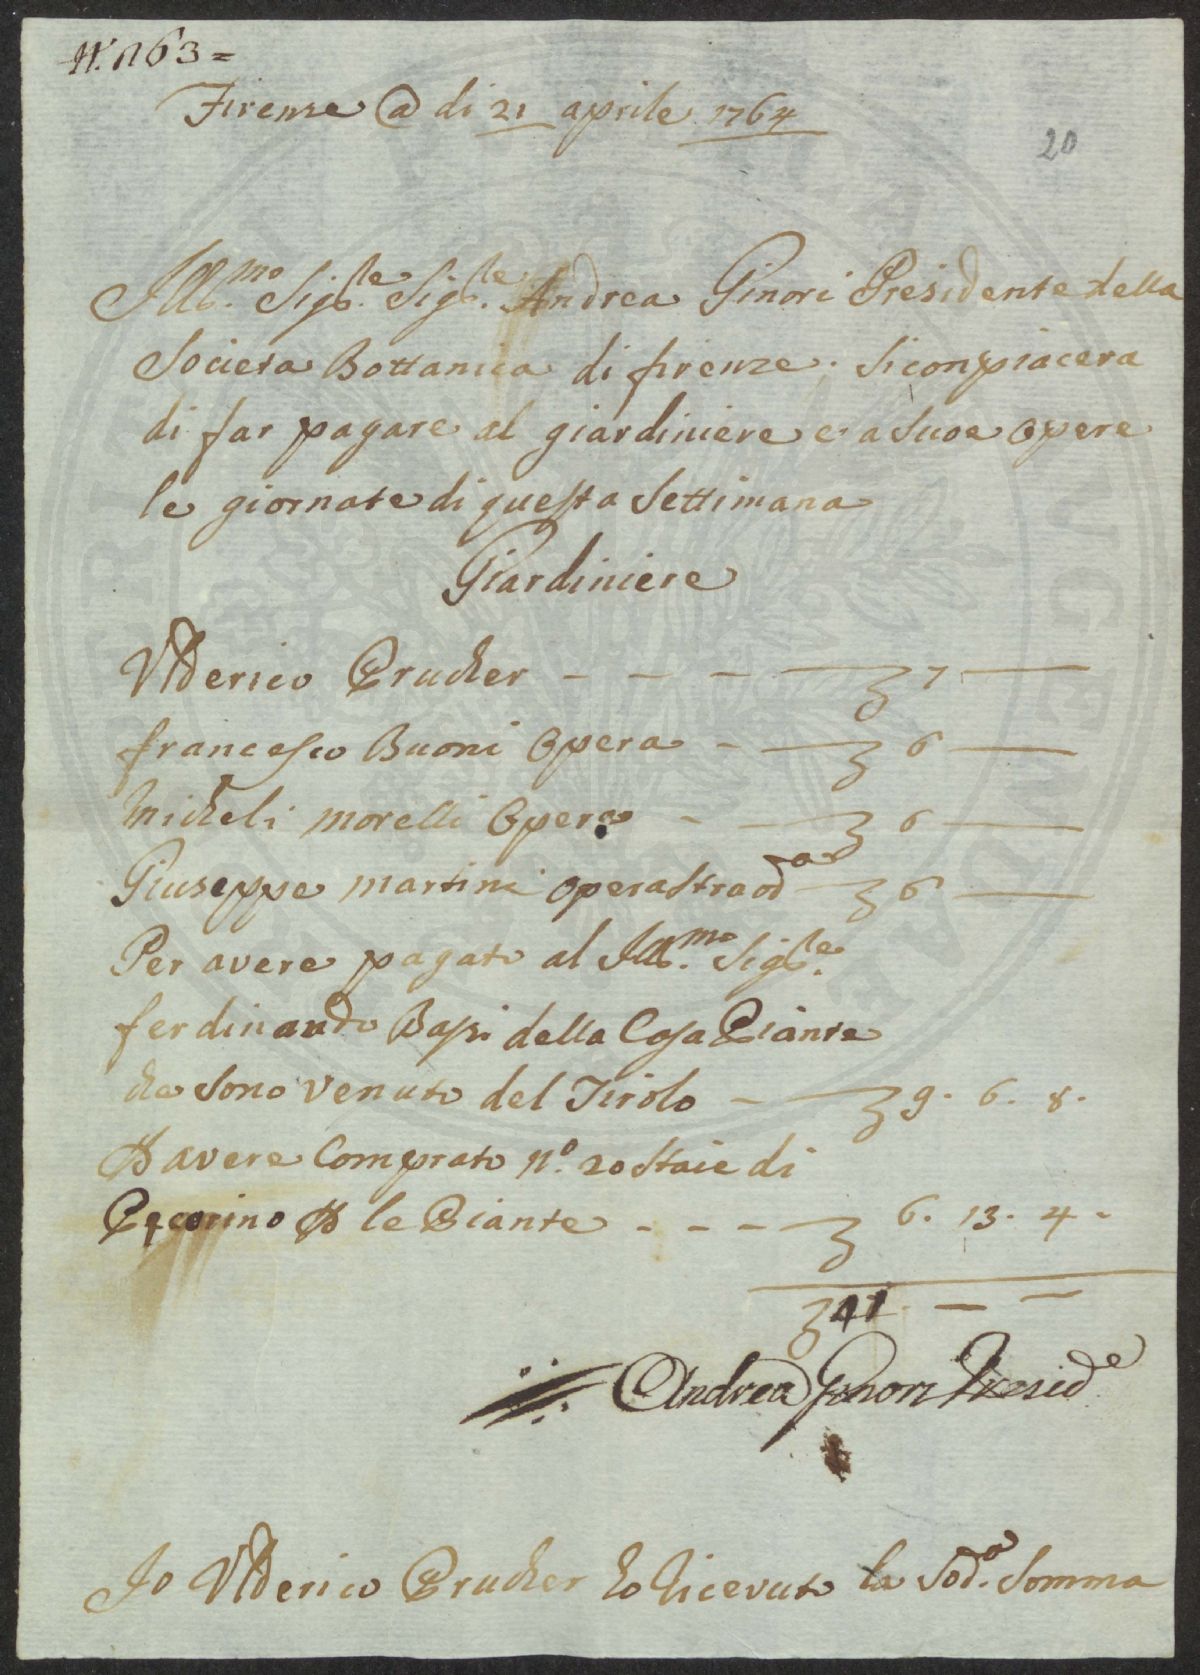 N. 1163 =
Firenze @ di 21 aprile 1764
20
Ill.mo Sig.le Sig.le Andrea Ginori Presidente della
Societa Bottanica di firenze. Si conpiacera
di far pagare al giardiniere e a Suoe Opere
le giornate di questa Settimana
Giardiniere
Ulderico Prucher - - - - 7 —
francesco Buoni Opera - — 6 —
Micheli Morelli Opera - — 6 —
Giuseppe Martini opera Straod.a — 6 —
Per avere pagato al Ill.mo Sig.le
ferdinando Bassi della Cosa Piante
che Sono Venute del Tirolo - — 9. 6. 8.
P avere Comprato n.o 20 Staie di
Pecorino P le Piante - - - — 6. 13. 4 -
41. — —
Andrea Ginori Presid.e
Io Ulderico Prucher ho Ricevuto la Sod.a Somma